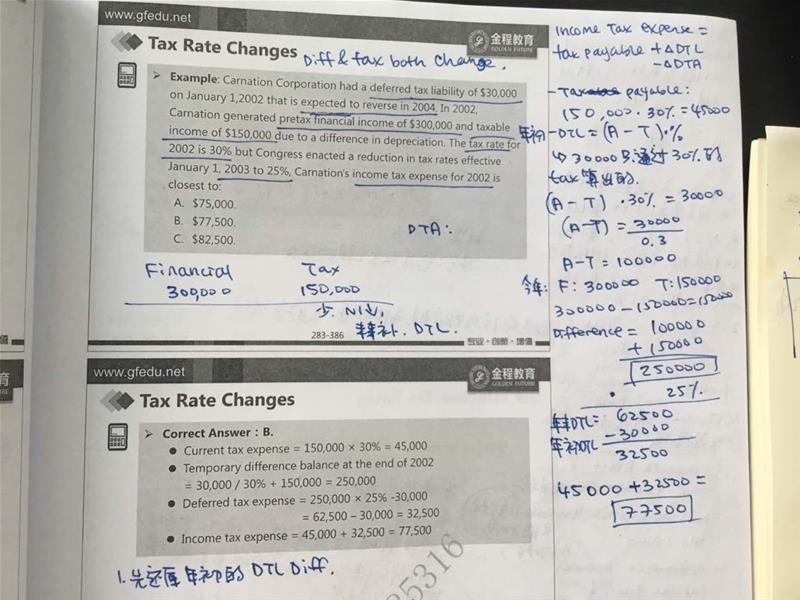 www.gfedu.net
金程教育
GOLDEN FUTURE
Tax Rate Changes
Diff & tax both change.
Example: Carnation Corporation had a deferred tax liability of $30,000
on January 1,2002 that is expected to reverse in 2004. In 2002,
Carnation generated pretax financial income of $300,000 and taxable
income of $150,000 due to a difference in depreciation. The tax rate for
2002 is 30% but Congress enacted a reduction in tax rates effective
January 1, 2003 to 25%, Carnation's income tax expense for 2002 is
closest to:
A. $75,000.
B. $77,500.
C. $82,500.
DTA:
Financial Tax
300,000 150,000
少. NI↓,
补. DTL.
283-386
专业·创新·增值
income Tax expense =
tax payable + ΔDTL
- ΔDTA
- payable:
150,000. 30% = 45000
年初 - DTL = (A - T)·%
↳ 30000 是通过 30% 的
tax 算出的.
(A - T) · 30% = 30000
(A-T) = 30000
0.3
A-T = 100000
今年: F: 300000 T: 150000
300000 - 150000 = 150000
Difference = 100000
+ 150000
250000
· 25%
年末DTL = 62500
年初DTL - 30000
32500
45000 + 32500 =
77500
www.gfedu.net
金程教育
GOLDEN FUTURE
Tax Rate Changes
Correct Answer : B.
Current tax expense = 150,000 × 30% = 45,000
Temporary difference balance at the end of 2002
= 30,000 / 30% + 150,000 = 250,000
Deferred tax expense = 250,000 × 25% -30,000
= 62,500 – 30,000 = 32,500
Income tax expense = 45,000 + 32,500 = 77,500
1. 先还原 年初的 DTL Diff.
5316
增值
育